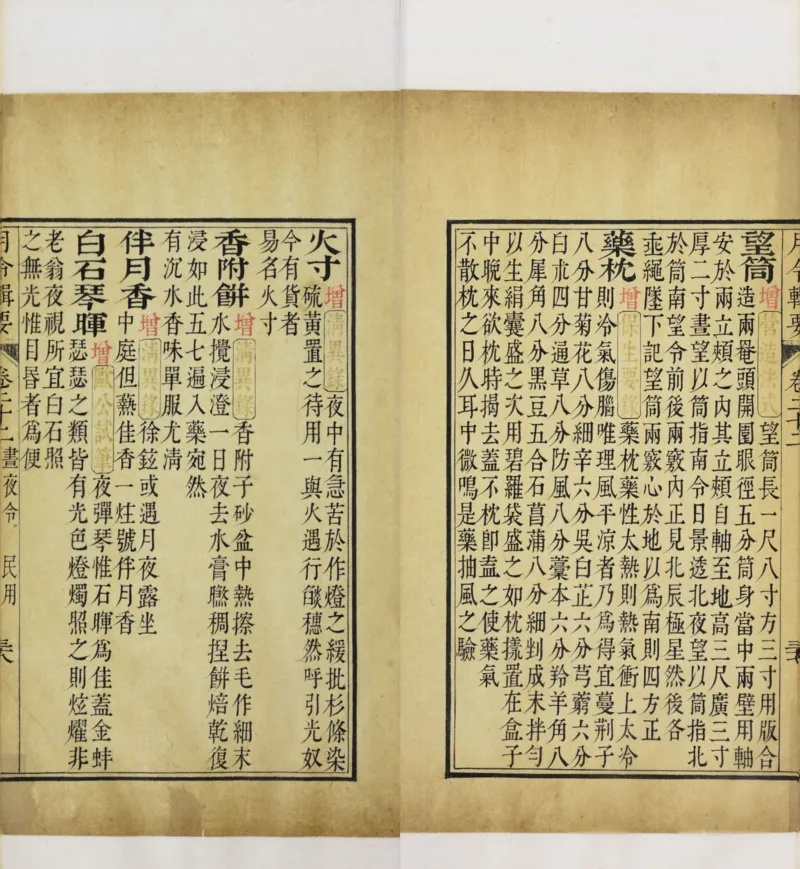 月令輯要 卷二十二
望筒 增 營造法式 望筒長一尺八寸方三寸用版合
造兩罨頭開圜眼徑五分筒身當中兩壁用軸
安於兩立頰之內其立頰自軸至地高三尺廣三寸
厚二寸晝望以筒指南令日景透北夜望以筒指北
於筒南望令前後兩竅內正見北辰極星然後各
垂繩墜下記望筒兩竅心於地以為南則四方正
藥枕 增 保生要錄 藥枕藥性太熱則熱氣衝上太冷
則冷氣傷腦唯理風平涼者乃為得宜蔓荆子
八分甘菊花八分細辛六分吳白芷六分芎藭六分
白朮四分通草八分防風八分藁本六分羚羊角八
分犀角八分黑豆五合石菖蒲八分細剉成末拌勻
以生絹囊盛之次用碧羅袋盛之如枕㨾置在盒子
中晚來欲枕時揭去蓋不枕即盍之使藥氣
不散枕之日久耳中微鳴是藥抽風之驗
火寸 增 清異錄 夜中有急苦於作燈之緩批杉條染
硫黃置之待用一與火遇行燄穗然呼引光奴
今有貨者
易名火寸
香附餅 增 清異錄 香附子砂盆中熱擦去毛作細末
水攪浸澄一日夜去水膏㬵稠捏餅焙乾復
浸如此五七遍入藥宛然
有沉水香味單服尤清
伴月香 增 清異錄 徐鉉或遇月夜露坐
中庭但爇佳香一炷號伴月香
白石琴暉 增 歐公試筆 夜彈琴惟石暉為佳蓋金蚌
瑟瑟之類皆有光色燈燭照之則炫燿非
老翁夜視所宜白石照
之無光惟目昬者為便
月令輯要 卷二十二 晝夜令 民用